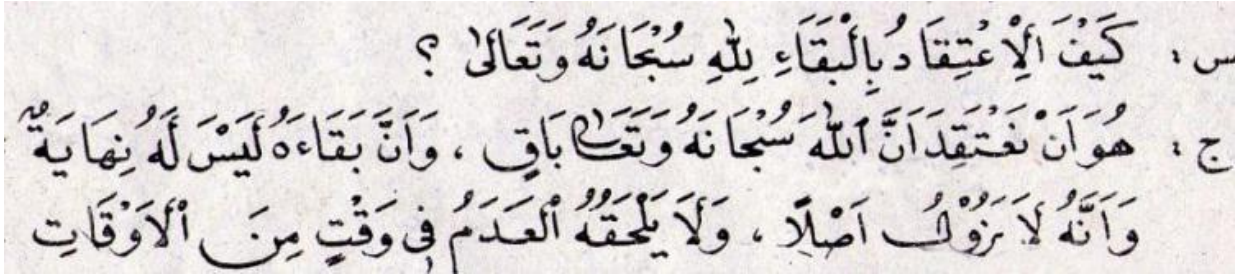 س : كَيْفَ الْاِعْتِقَادُ بِالْبَقَاءِ لِلّٰهِ سُبْحَانَهُ وَتَعَالٰى ؟
ج : هُوَ اَنْ نَعْتَقِدَ اَنَّ اللّٰهَ سُبْحَانَهُ وَتَعَالٰى بَاقٍ ، وَاَنَّ بَقَاءَهُ لَيْسَ لَهُ نِهَايَةٌ
وَاَنَّهُ لَا يَزُوْلُ اَصْلًا ، وَلَا يَلْحَقُهُ الْعَدَمُ فِى وَقْتٍ مِنَ الْاَوْقَاتِ